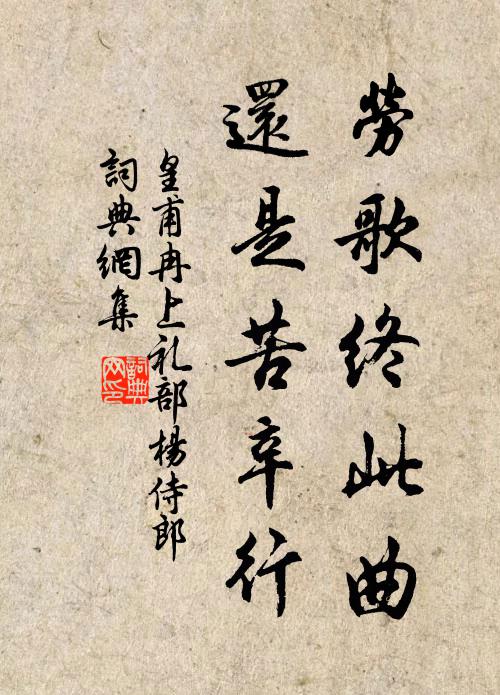 勞歌終此曲
還是苦辛行
皇甫冉上礼部楊侍郎
詞典網集
詞典網印